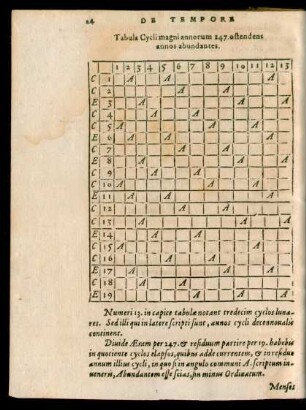 24 DE TEMPORE
Tabula Cycli magni annorum 247. ostendens
annos abundantes.
1 2 3 4 5 6 7 8 9 10 11 12 13
C 1 A A A
C 2 A A
E 3 A A A
C 4 A A A
C 5 A A A
E 6 A A A
C 7 A A
E 8 A A A
C 9 A A A
C 10 A A
E 11 A A
C 12 A A
C 13 A A A
E 14 A A A
C 15 A A
C 16 A A
E 17 A A
C 18 A A
E 19 A A A
Numeri 13. in capite tabulæ notant tredecim cyclos luna-
res. Sed illi qui in latere scripti sunt, annos cycli decennovalis
continent.
Divide Æram per 247. & residuum partire per 19. habebis
in quotiente cyclos elapsos, quibus adde currentem, & in residuo
annum illius cycli, in quo si in angulo communi A. scriptum in-
veneris, Abundantem esse scias, sin minus Ordinatum.
Menses